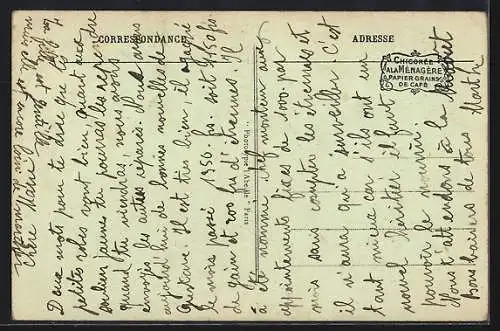 CORRESPONDANCE
ADRESSE
CHICORÉE
A LA MÉNAGÈRE
PAPIER GRAINS
DE CAFÉ
"Phototypie l'Abeille" Paris
Chère Marie
Deux mots pour te dire que tes
petites robes sont bien, quant aux
souliers jaunes tu pourras les reprendre
quand tu viendras, nous avons
envoyés les autres réparés. Nous avons
aujourd'hui de bonnes nouvelles de
Gustave. Il est très bien, il a gagné
le mois passé 1350 fr. soit 1150 fr
de gain et 200 frs d'étrennes. Il
a été nommé chef vendeur aux
appointements fixes de 1000 par
mois sans compter les étrennes et
il n'aura qu'à surveiller. C'est
tant mieux car s'ils ont un
nouvel héritier il faut
pouvoir le nourrir.
Nous t'attendons à la
Bons baisers de tous Marthe
Ton fils est gentil